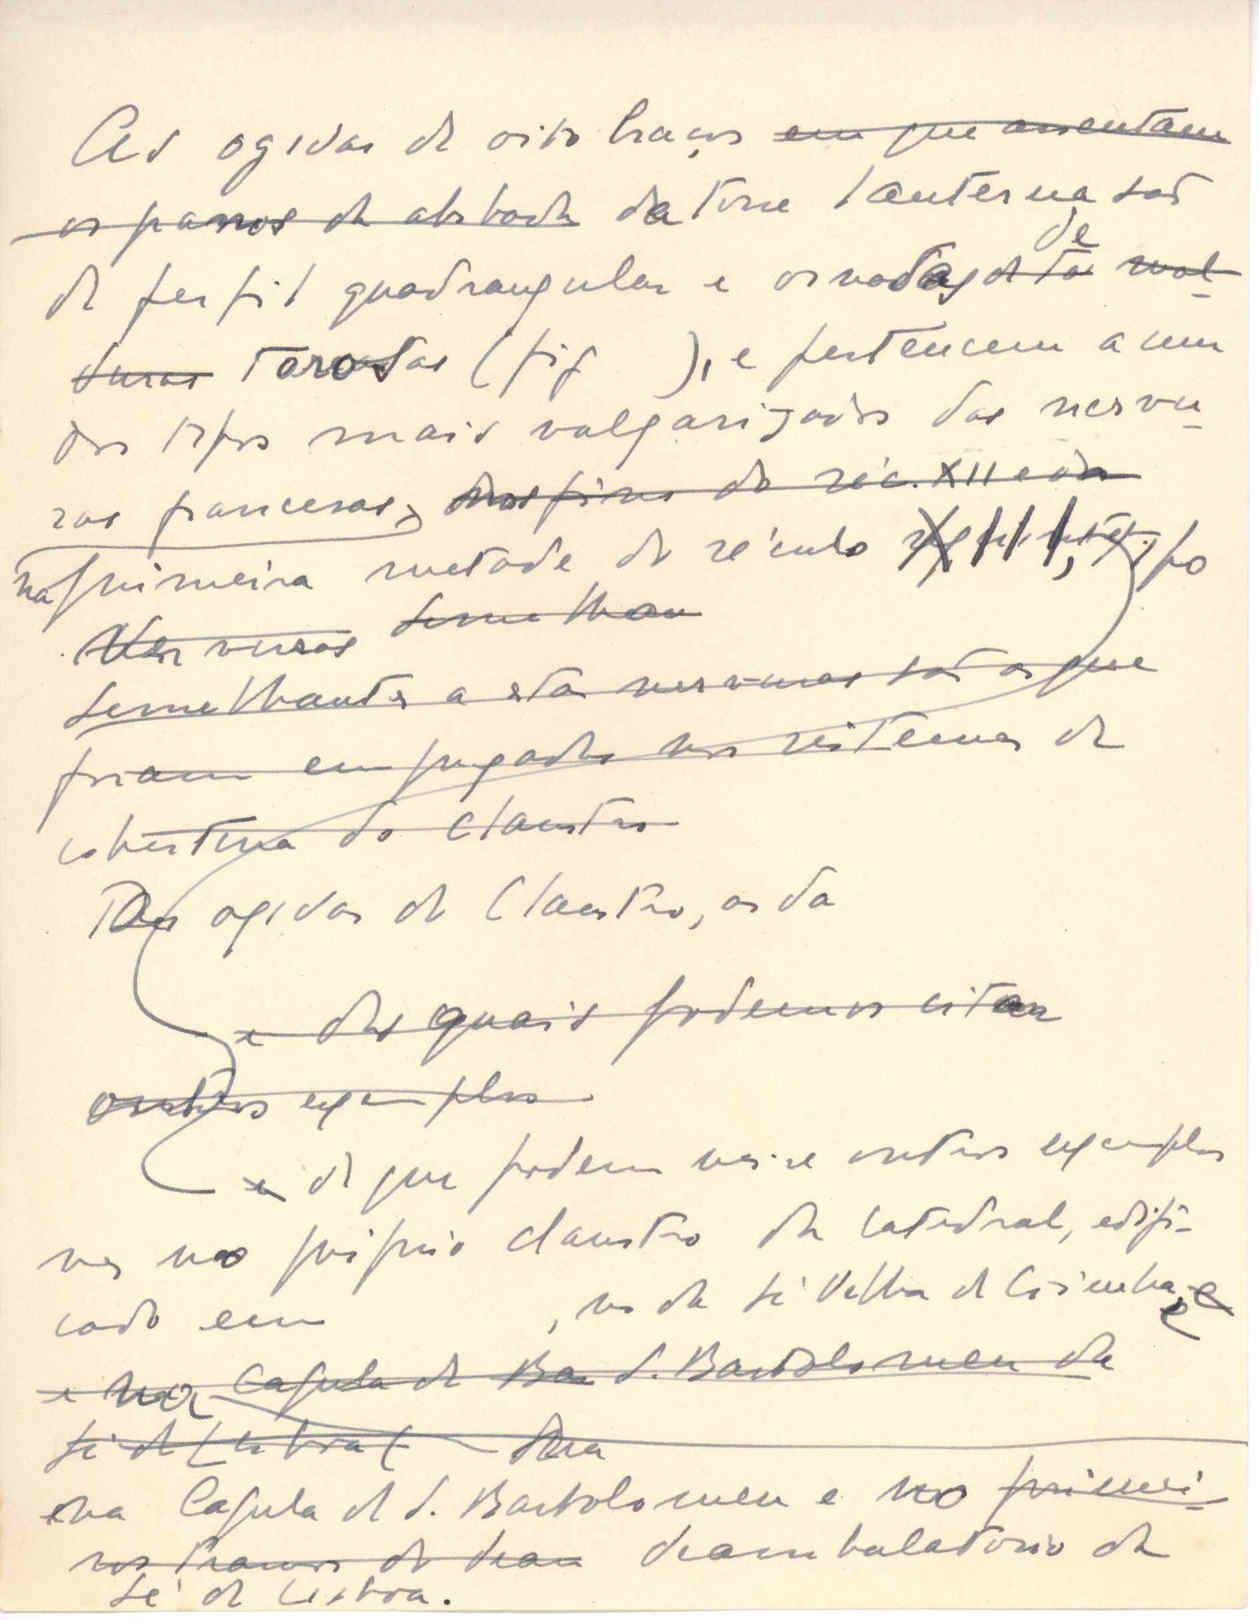 As ogivas de oito braços em que assentam
os panos da abobada da torre lanterna são
de
de perfil quadrangular e ornadas de tres mol-
duras torosas (fig ), e pertencem a um
dos tipos mais vulgarizados das nervu-
ras francesas, dos fins do séc. XII e da
na primeira metade do século XIII, tipo
Nervuras semelhan
semelhantes a estas nervuras são as que
foram empregadas nos sistemas de
cobertura do claustro
Das ogivas do Claustro, as da
e das quais podemos citar
outros exemplos
e de que podem ver-se outros exemplos
no próprio claustro da catedral, edifi-
cado em , no da Sé Velha de Coimbra, e
e na Capela de Ba S. Bartolomeu da
Sé de Lisboa (
na Capela de S. Bartolomeu e no primei-
ros tramos do deam deambulatorio da
Sé de Lisboa.